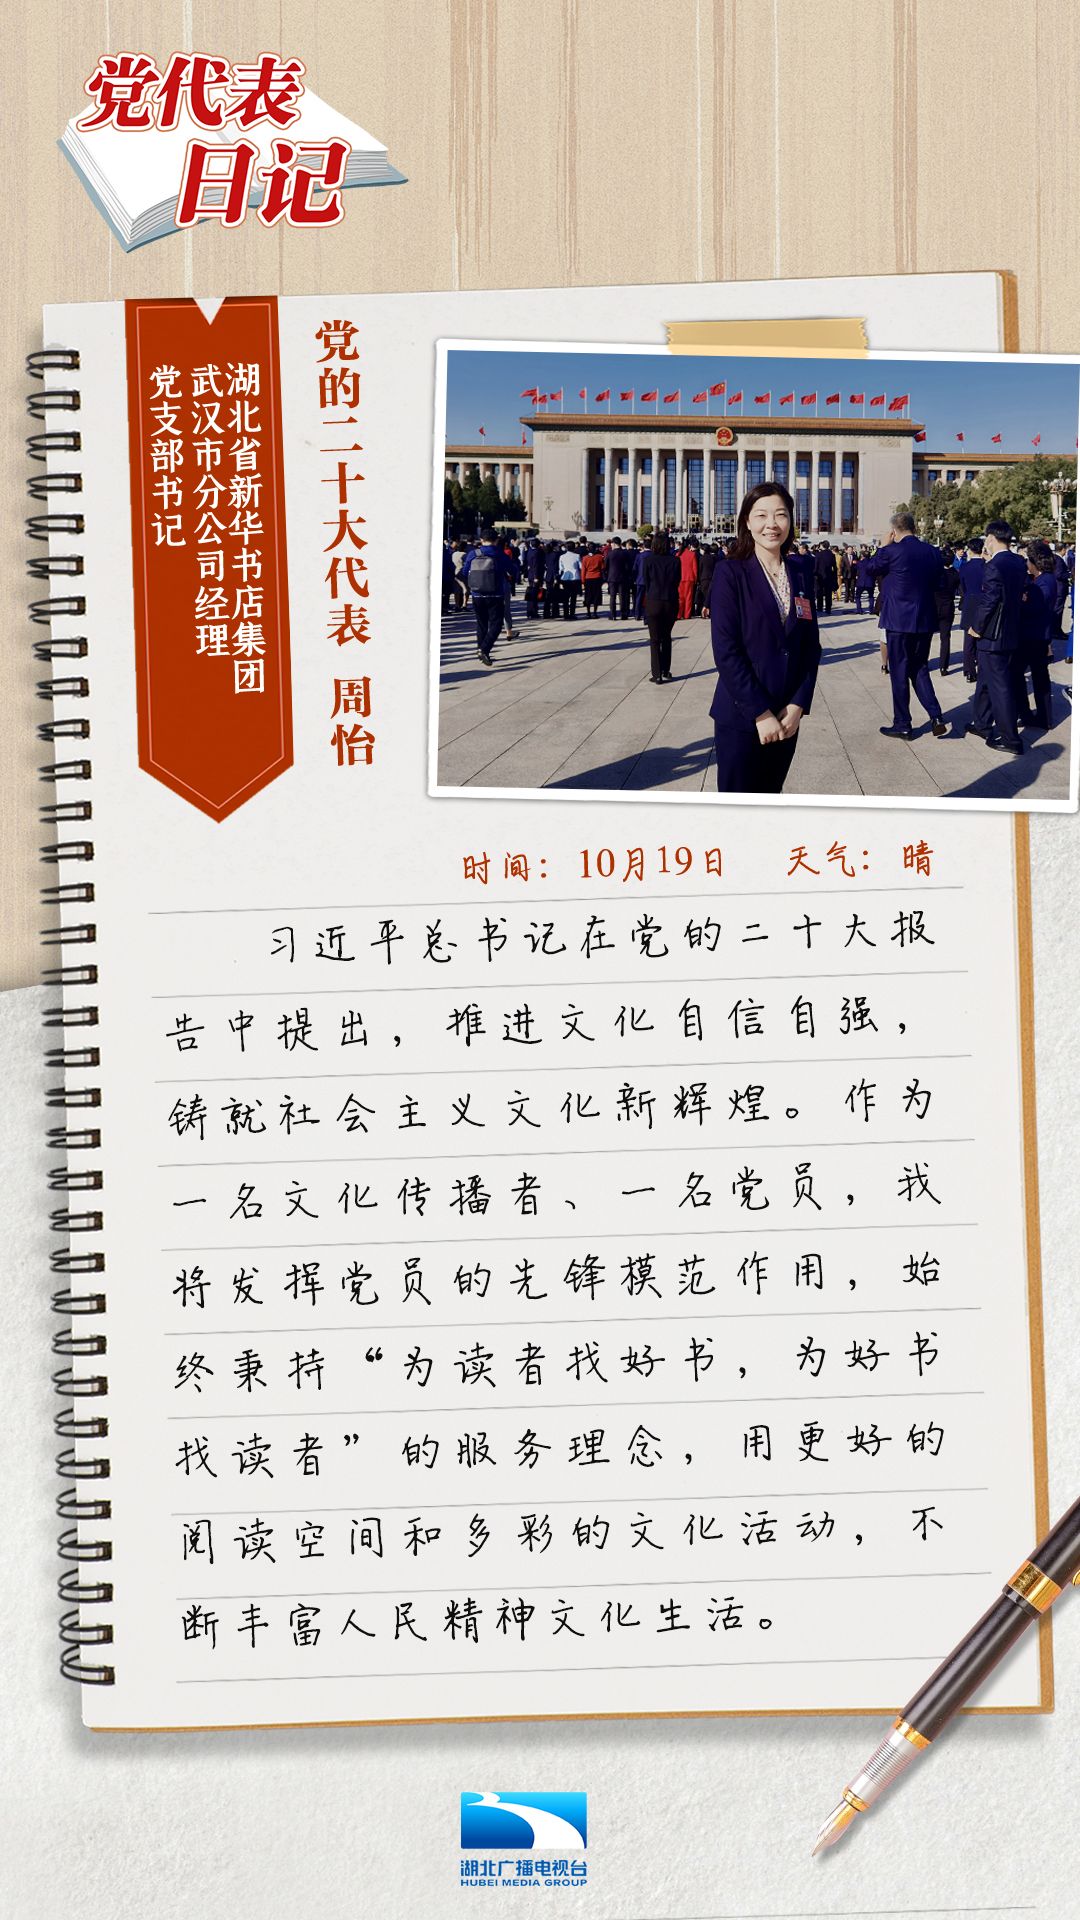 党代表
日记
湖北省新华书店集团
武汉市分公司经理
党支部书记
党的二十大代表 周怡
时间：10月19日 天气：晴
习近平总书记在党的二十大报
告中提出，推进文化自信自强，
铸就社会主义文化新辉煌。作为
一名文化传播者、一名党员，我
将发挥党员的先锋模范作用，始
终秉持“为读者找好书，为好书
找读者”的服务理念，用更好的
阅读空间和多彩的文化活动，不
断丰富人民精神文化生活。
湖北广播电视台
HUBEI MEDIA GROUP